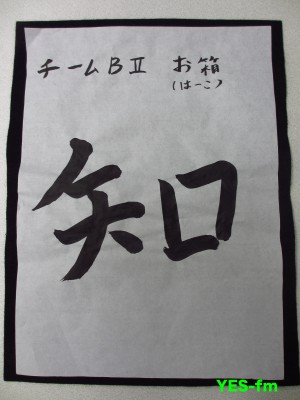 チームBⅡ お箱
(はーこ)
知
YES-fm